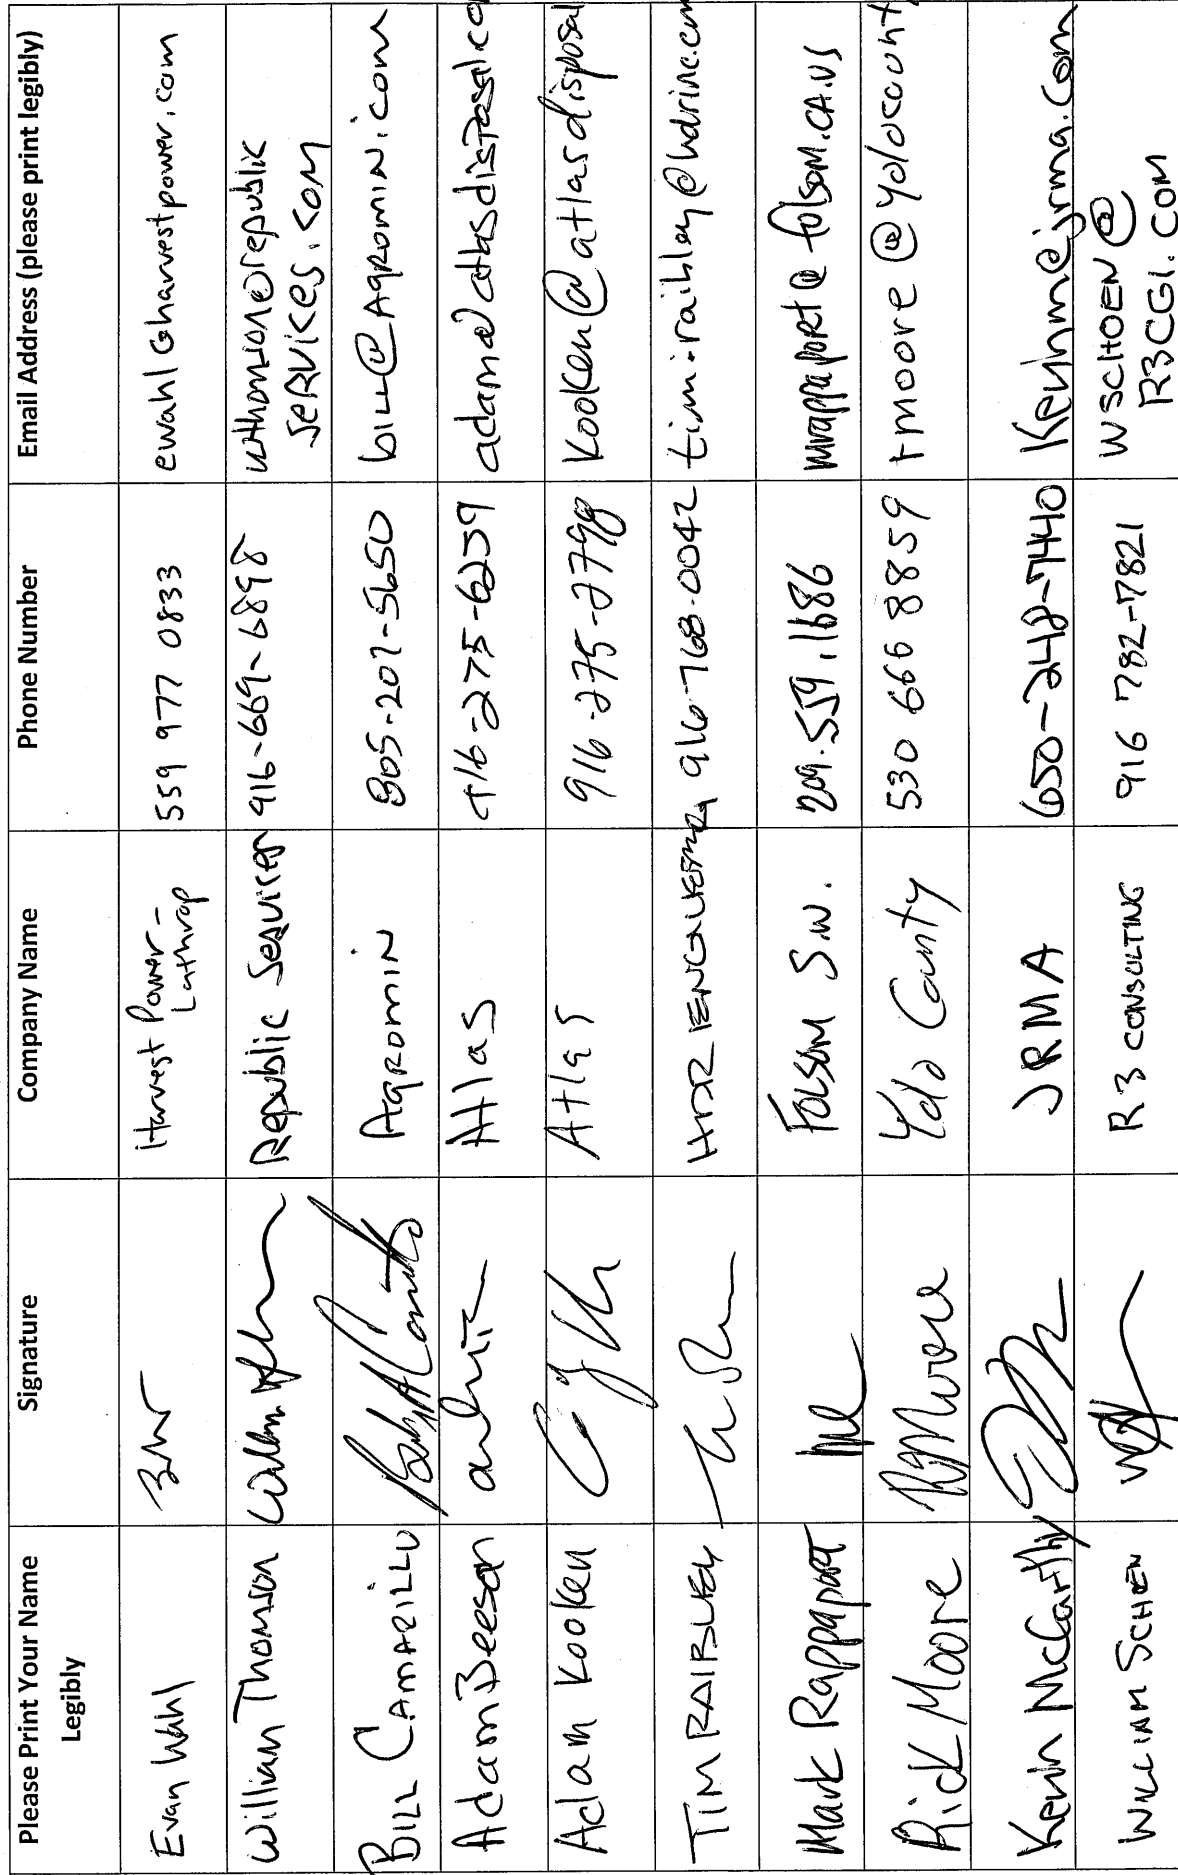 Please Print Your Name
Legibly
Signature
Company Name
Phone Number
Email Address (please print legibly)
Evan Wahl
Harvest Power -
Lathrop
559 977 0833
ewahl@harvestpower.com
William Thomson
Republic Services
916-669-6898
wthomson@republic
services.com
BILL CAMARILLO
AGROMIN
805-207-5650
bill@AGROMIN.com
Adam Beeson
Atlas
916-275-6239
Adam Kooken
Atlas
916-275-2798
kooken@atlasdisposal
TIM RAIBLEY
HDR ENGINEERING
916-768-0042
tim.raibley@hdrinc.com
Mark Rappaport
FOLSOM S.W.
209.559.1686
mrappaport@folsom.CA.US
Rick Moore
Yolo County
530 666 8859
rmoore@yolocounty
Kevin McCarthy
JRMA
650-248-7440
William SCHOEN
R3 CONSULTING
916 782-7821
WSCHOEN@
R3CGI.COM